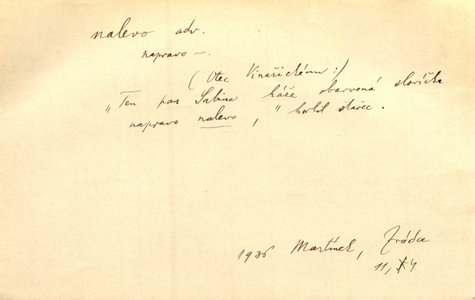 nalevo adv.
napravo ~.
(Otec Vinařickému:)
„Ten pan Sabina káže obarvená slovíčka
napravo nalevo," horlil stařec.
1936 Martínek, Zrádce
11, 4